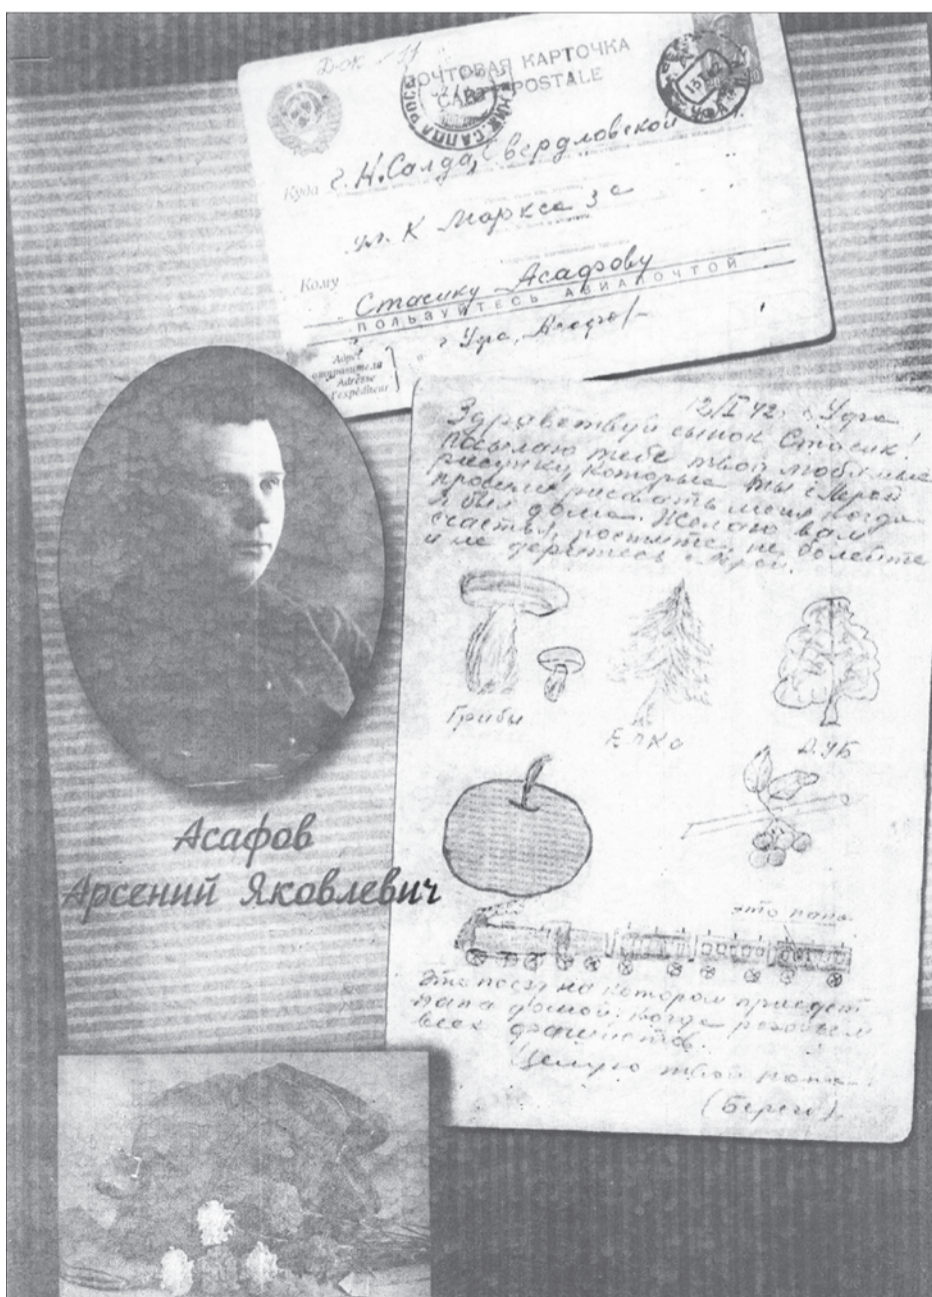 Док - 11
ПОЧТОВАЯ КАРТОЧКА
CARTE POSTALE
Куда г. Н. Салда, Свердловской
ул. К Маркса
Кому
Стасику Асафову
ПОЛЬЗУЙТЕСЬ АВИАПОЧТОЙ
г Уфа,
Адрес
отправителя
Adresse
l'expéditeur
12/I 42 г Уфа
Здравствуй сынок Стасик!
Посылаю тебе твои любимые
рисунки, которые ты с Лерой
просили рисовать меня когда
я был дома. Желаю вам
счастья, растите, не болейте
и не деритесь с Лерой.
Грибы
Елка
ДУБ
Асафов
Арсений Яковлевич
это папа
Это поезд на котором приедет
папа домой, когда разобьем
всех фашистов.
Целую твой папа